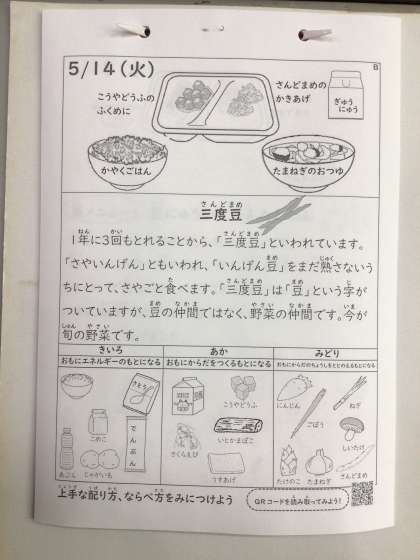 5/14(火)
B
こうやどうふの
ふくめに
さんどまめの
かきあげ
ぎゅう
にゅう
かやくごはん
たまねぎのおつゆ
さんどまめ
三度豆
ねん かい さんどまめ
1年に3回もとれることから、「三度豆」といわれています。
まめ じゅく
「さやいんげん」ともいわれ、「いんげん豆」をまだ熟さないう
た さんどまめ まめ じ
ちにとって、さやごと食べます。「三度豆」は「豆」という字が
まめ なかま やさい なかま いま
ついていますが、豆の仲間ではなく、野菜の仲間です。今が
しゅん やさい
旬の野菜です。
きいろ
あか
みどり
おもにエネルギーのもとになる
おもにからだをつくるもとになる
おもにからだのちょうしをととのえるもとになる
さとう
こめこ
でんぷん
あぶら
じゃがいも
こうやどうふ
いとかまぼこ
さくらえび
うすあげ
にんじん
ねぎ
ごぼう
しいたけ
たけのこ
たまねぎ
さんどまめ
じょうず くば かた かた
上手な配り方、ならべ方をみにつけよう
QRコードを読み取ってみよう!